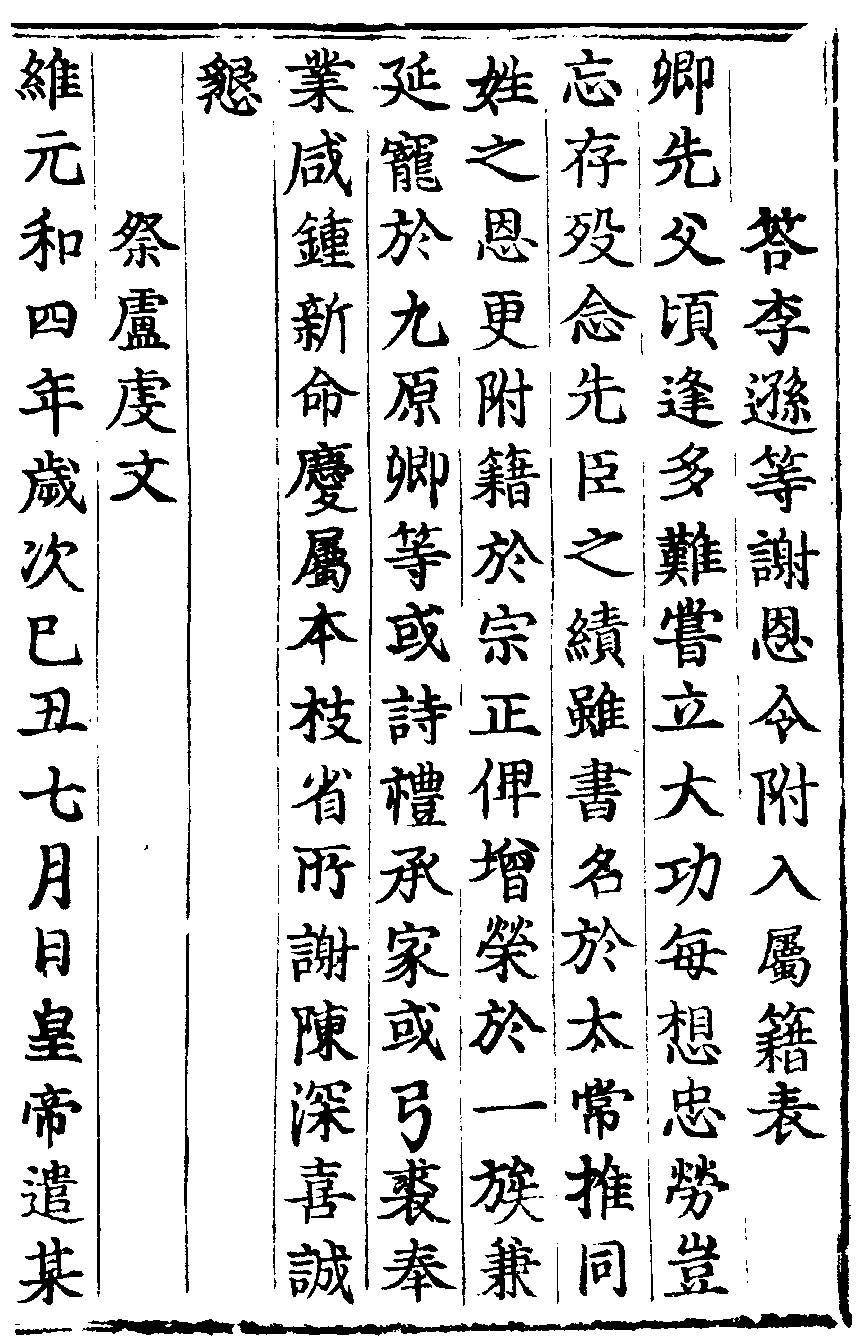 荅李遜等謝恩令附入屬籍表
卿先父頃逢多難嘗立大功每想忠勞豈
忘存歿念先臣之績雖書名於太常推同
姓之恩更附籍於宗正俾增榮於一族兼
延寵於九原卿等或詩禮承家或弓裘奉
業咸鍾新命慶屬本枝省所謝陳深喜誠
懇
祭盧虔文
維元和四年歲次巳丑七月日皇帝遣某